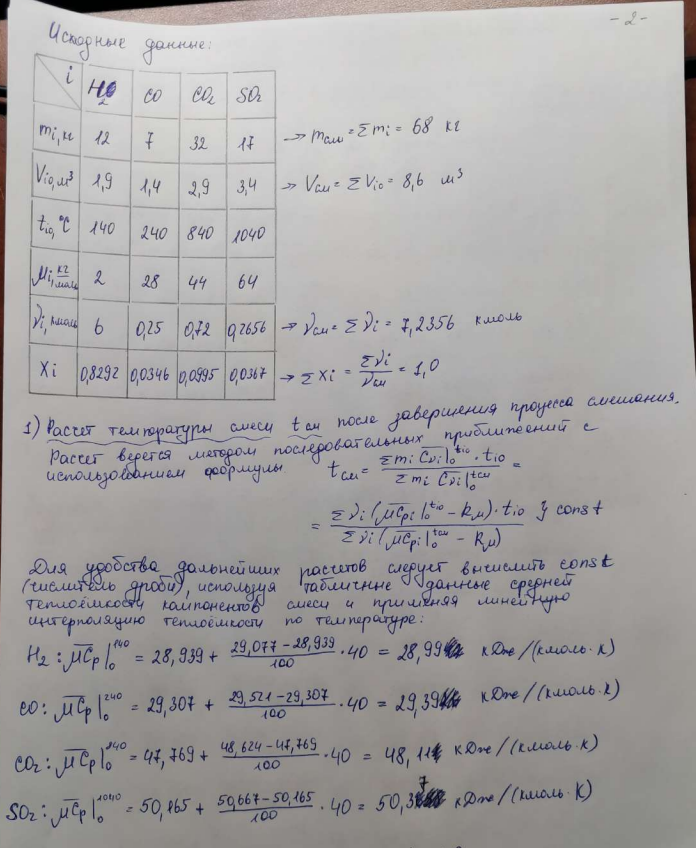 - 2 -
Исходные данные:
i H₂ CO CO₂ SO₂
mi, кг 12 7 32 17 → mсм = Σmi = 68 кг
Vio, м³ 1,9 1,4 2,9 3,4 → Vсм = ΣVio = 8,6 м³
tio, °C 140 240 840 1040
μi, кг/моль 2 28 44 64
νi, кмоль 6 0,25 0,72 0,2656 → νсм = Σνi = 7,2356 кмоль
Xi 0,8292 0,0346 0,0995 0,0367 → ΣXi = Σνi/νсм = 1,0
1) Расчет температуры смеси tсм после завершения процесса смешания.
Расчет ведется методом последовательных приближений с
использованием формулы tсм = Σmi C̅νi|₀^tio · tio / Σmi C̅νi|₀^tсм =
= Σνi(μC̅pi|₀^tio - Rμ) · tio / Σνi(μC̅pi|₀^tсм - Rμ) } const
Для удобства дальнейших расчетов следует вычислить const
(числитель дроби), используя табличные данные средней
теплоёмкости компонентов смеси и применяя линейную
интерполяцию теплоёмкости по температуре:
H₂: μC̅p|₀^140 = 28,939 + (29,077 - 28,939)/100 · 40 = 28,99 кДж/(кмоль·К)
CO: μC̅p|₀^240 = 29,307 + (29,521 - 29,307)/100 · 40 = 29,39 кДж/(кмоль·К)
CO₂: μC̅p|₀^840 = 47,769 + (48,624 - 47,769)/100 · 40 = 48,11 кДж/(кмоль·К)
SO₂: μC̅p|₀^1040 = 50,165 + (50,667 - 50,165)/100 · 40 = 50,37 кДж/(кмоль·К)